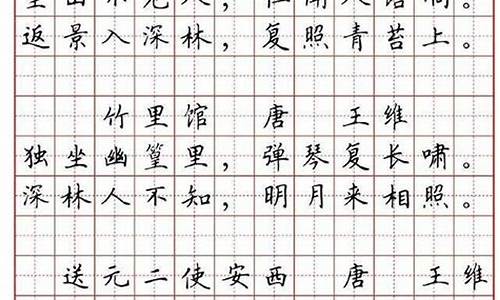 返景入深林，复照青苔上。
竹里馆 唐 王维
独坐幽篁里，弹琴复长啸。
深林人不知，明月来相照。
送元二使安西 唐 王维